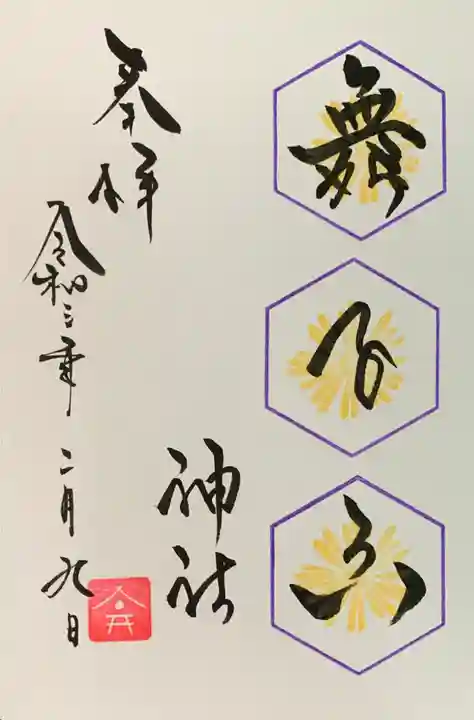 舞子六
神社
奉拝
令和三年二月九日